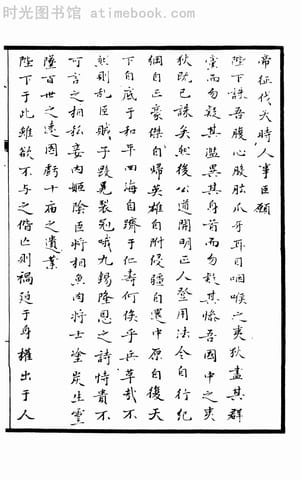 时光图书馆 - www.atimebook.com
帝征伐天時人事臣願
陛下誅吾腹心股肱爪牙耳目咽喉之夷狄盡其群
黨而勿疑其濫異其身首而勿駭其慘吾國中之夷
狄既已誅矣然後公道開明正人登用法令自行紀
綱自立豪傑自歸英雄自附侵疆自還中原自復天
下自底于和平四海自躋于仁壽何俟乎兵革哉不
然則亂臣賊子毀冕裂冠哦九錫隆恩之詩恃貴不
可言之相私妾內姬陰臣將相魚肉將士塗炭生靈
墜百世之遠圖虧十廟之遺業
陛下于此雖欲不與之偕亡則禍迫于身權出于人